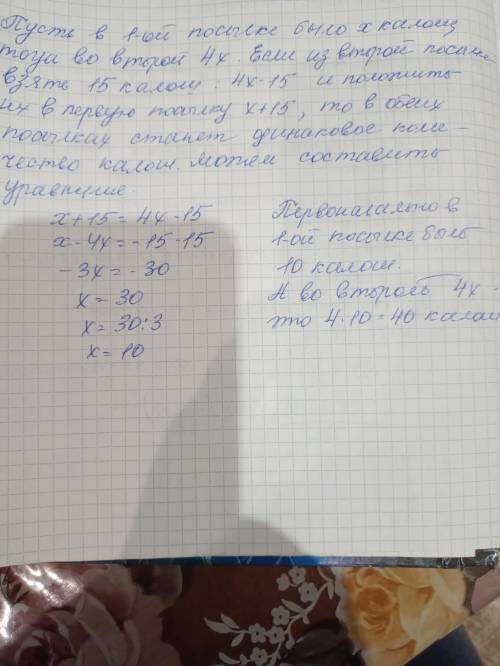 Пусть в 1-ой посылке было х калош
тогда во второй 4х. Если из второй посылки
взять 15 калош : 4х-15 и положить
их в первую посылку х+15, то в обеих
посылках станет одинаковое коли-
чество калош. Можем составить
уравнение.
х+15=4х-15
х-4х=-15-15
-3х=-30
х=30
х=30:3
х=10
Первоначально в
1-ой посылке было
10 калош.
А во второй 4х -
это 4·10=40 калош